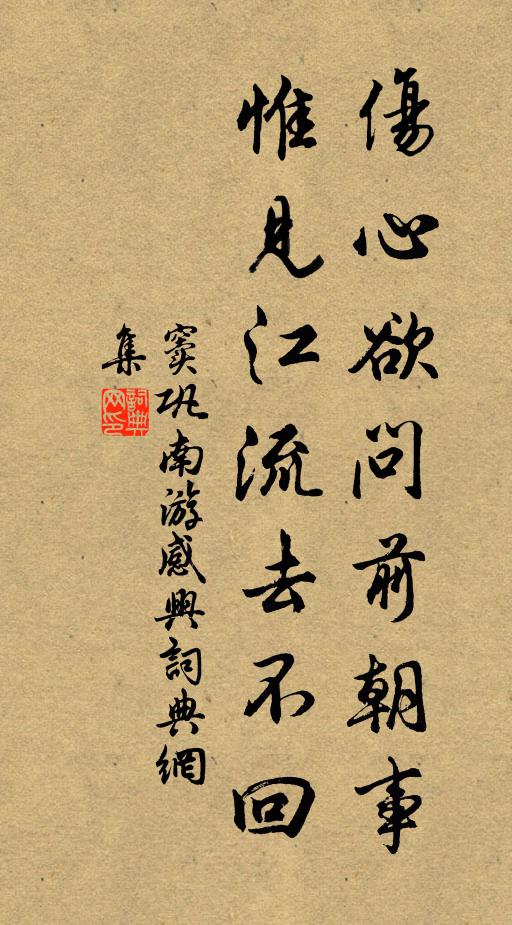 傷心欲問前朝事
惟見江流去不回
竇巩南游感興詞典網
集
詞典網印